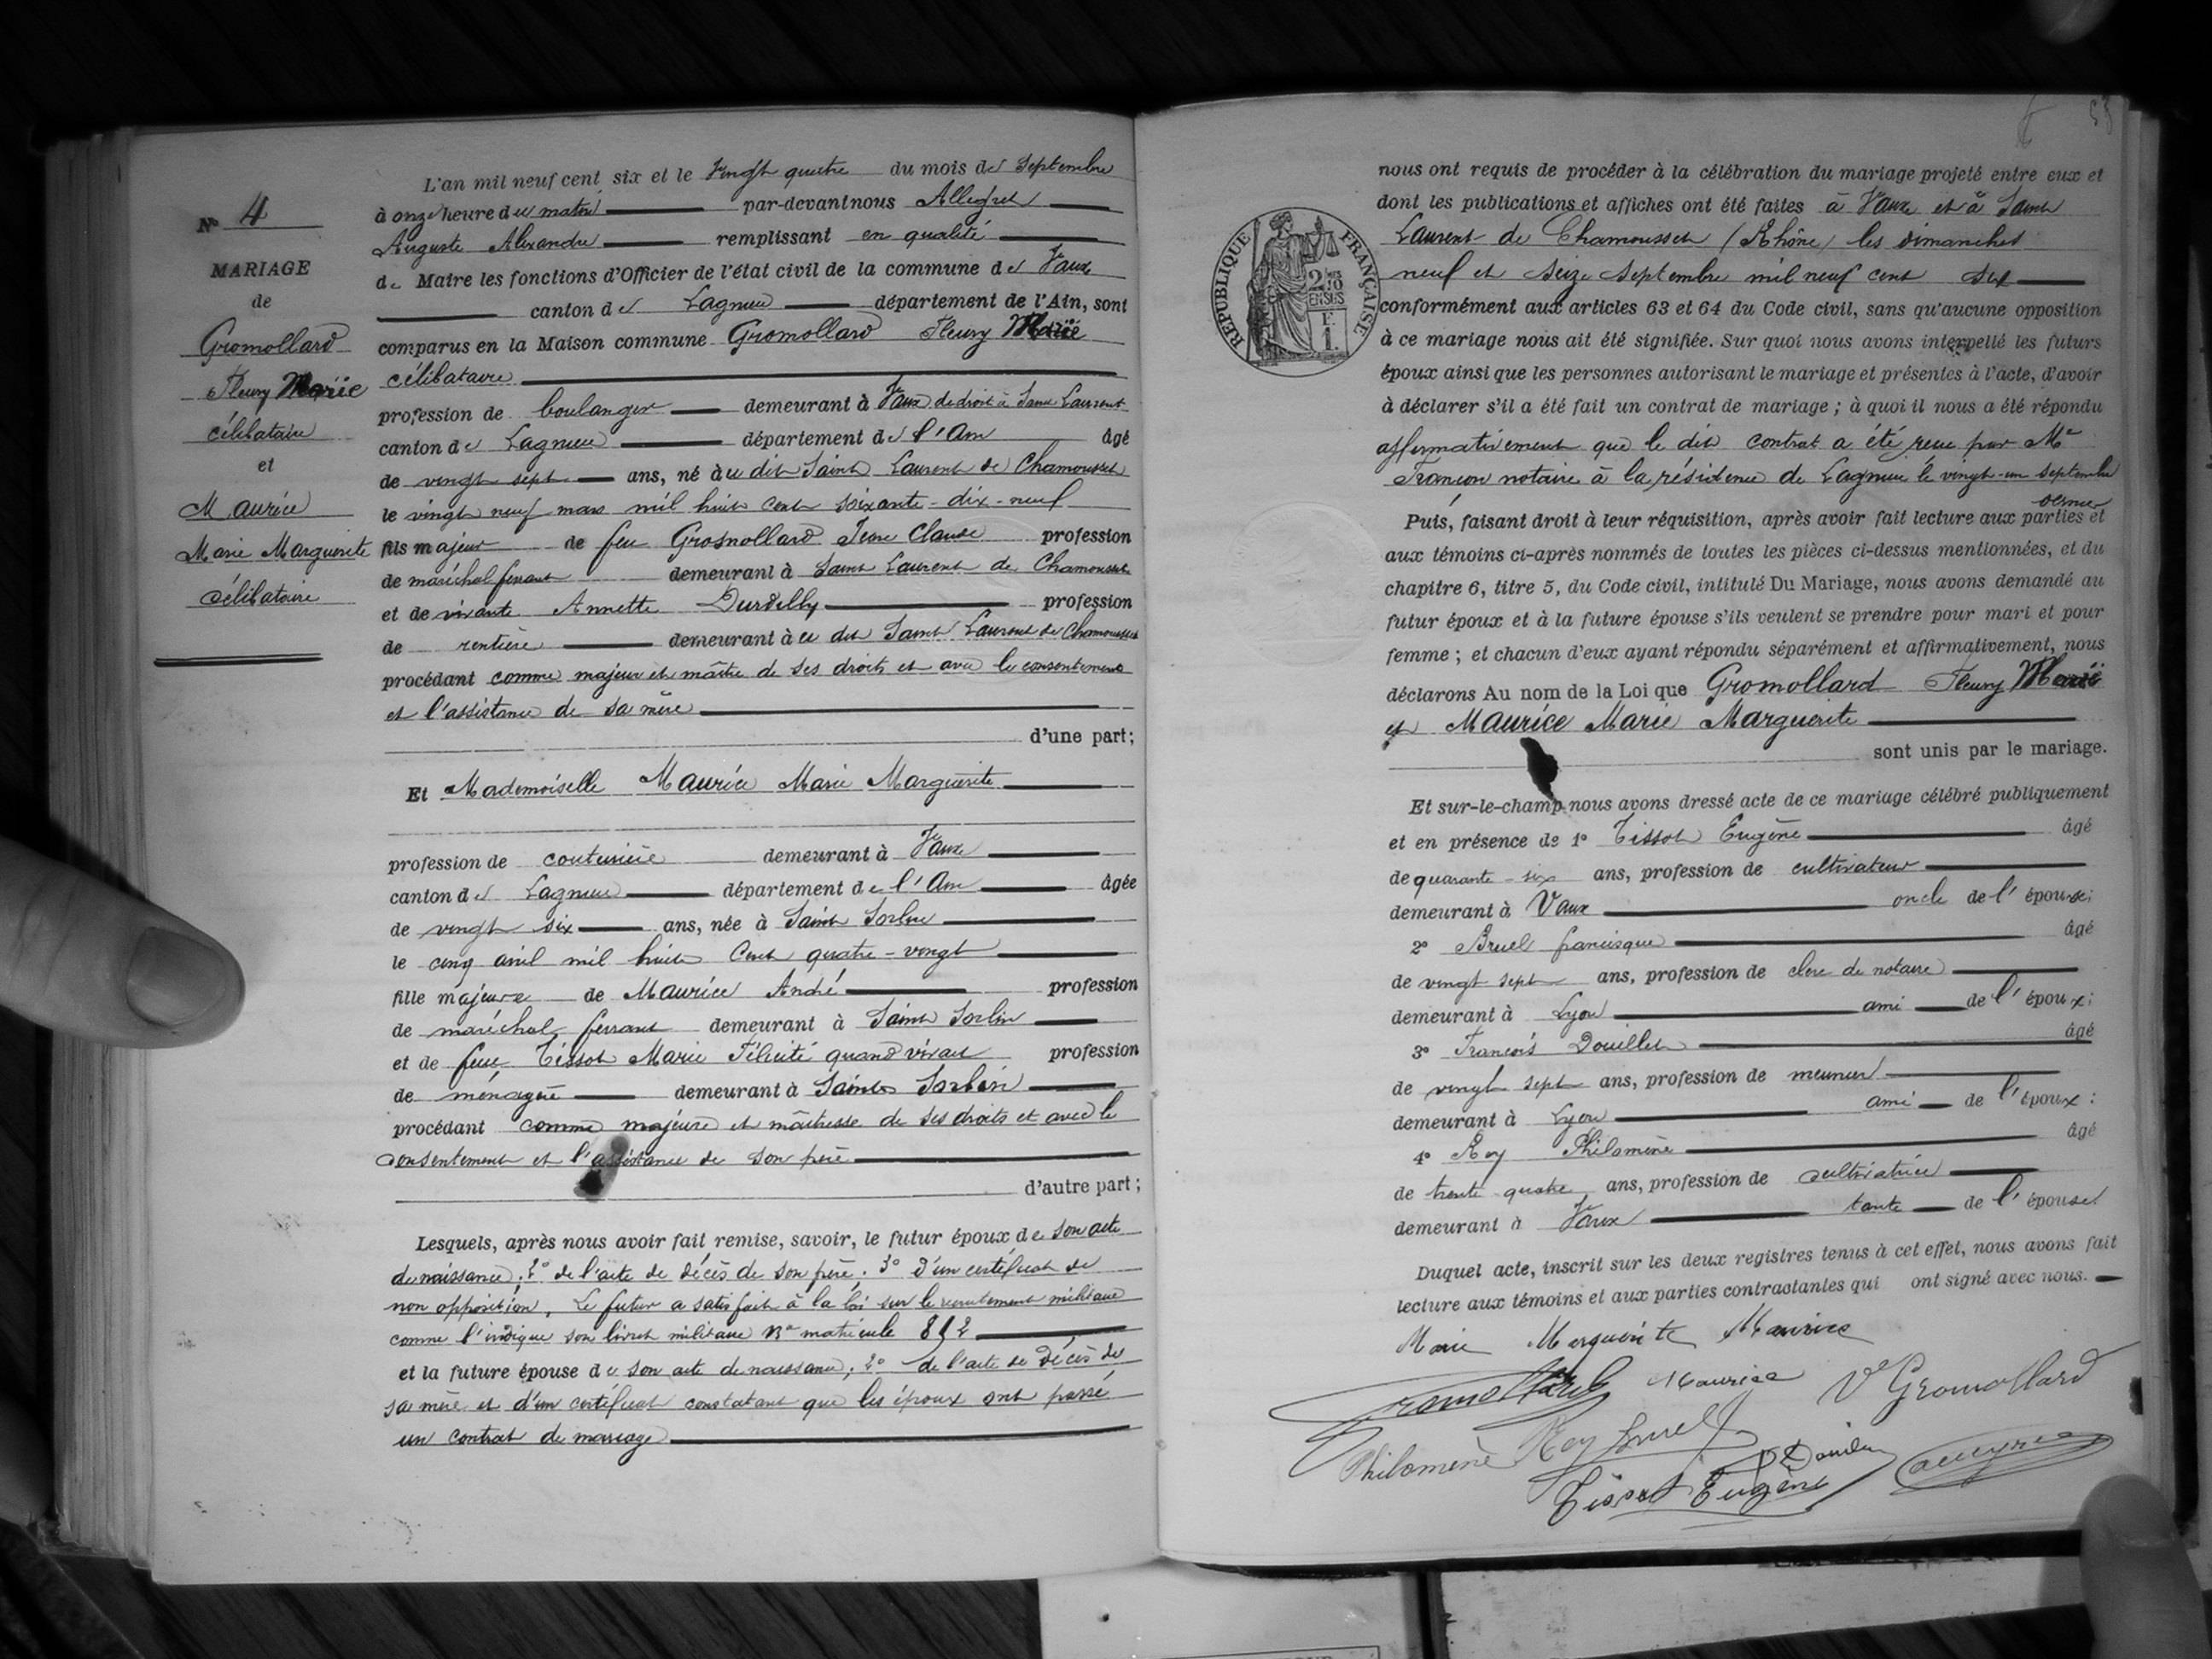 N° 4
MARIAGE
de
Gromollard
Fleury Marie
célibataire
et
Maurice
Marie Marguerite
célibataire
L'an mil neuf cent six et le vingt quatre du mois de Septembre
à onze heure du matin par-devant nous Allegret
Auguste Alexandre remplissant en qualité
de Maire les fonctions d'Officier de l'état civil de la commune de Vaux
canton de Lagnieu département de l'Ain, sont
comparus en la Maison commune Gromollard Fleury Marie
célibataire
profession de boulanger demeurant à Vaux de droit à Saint Laurent
canton de Lagnieu département de l'Ain âgé
de vingt sept ans, né à ce dit Saint Laurent de Chamousset
le vingt neuf mars mil huit cent soixante-dix-neuf
fils majeur de feu Gromollard Jean Claude profession
de maréchal ferrant demeurant à Saint Laurent de Chamousset
et de vivante Annette Durdilly profession
de rentière demeurant à ce dit Saint Laurent de Chamousset
procédant comme majeur et maître de ses droits et avec le consentement
et l'assistance de sa mère
d'une part;
Et Mademoiselle Maurice Marie Marguerite
profession de couturière demeurant à Vaux
canton de Lagnieu département de l'Ain âgée
de vingt six ans, née à Saint Sorlin
le cinq avril mil huit cent quatre-vingt
fille majeure de Maurice André profession
de maréchal ferrant demeurant à Saint Sorlin
et de feue Tissot Marie Félicité quand vivait profession
de ménagère demeurant à Saint Sorlin
procédant comme majeure et maîtresse de ses droits et avec le
consentement et l'assistance de son père
d'autre part;
Lesquels, après nous avoir fait remise, savoir, le futur époux de son acte
de naissance; 2° de l'acte de décès de son père; 3° d'un certificat de
non opposition, Le futur a satisfait à la loi sur le recrutement militaire
comme l'indique son livret militaire N° matricule
et la future épouse de son acte de naissance; 2° de l'acte de décès de
sa mère et d'un certificat constatant que les époux ont passé
un contrat de mariage
53
RÉPUBLIQUE FRANÇAISE
nous ont requis de procéder à la célébration du mariage projeté entre eux et
dont les publications et affiches ont été faites à Vaux et à Saint
Laurent de Chamousset (Rhône) les dimanches
neuf et seize Septembre mil neuf cent six
conformément aux articles 63 et 64 du Code civil, sans qu'aucune opposition
à ce mariage nous ait été signifiée. Sur quoi nous avons interpellé les futurs
époux ainsi que les personnes autorisant le mariage et présentes à l'acte, d'avoir
à déclarer s'il a été fait un contrat de mariage; à quoi il nous a été répondu
affirmativement que le dit contrat a été reçu par Me
Françon notaire à la résidence de Lagnieu le vingt-un septembre
dernier
Puis, faisant droit à leur réquisition, après avoir fait lecture aux parties et
aux témoins ci-après nommés de toutes les pièces ci-dessus mentionnées, et du
chapitre 6, titre 5, du Code civil, intitulé Du Mariage, nous avons demandé au
futur époux et à la future épouse s'ils veulent se prendre pour mari et pour
femme; et chacun d'eux ayant répondu séparément et affirmativement, nous
déclarons Au nom de la Loi que Gromollard Fleury Marie
et Maurice Marie Marguerite
sont unis par le mariage.
Et sur-le-champ nous avons dressé acte de ce mariage célébré publiquement
et en présence de 1° Tissot Eugène âgé
de quarante-six ans, profession de cultivateur
demeurant à Vaux oncle de l'épouse;
2° Bruel francisque âgé
de vingt sept ans, profession de clerc de notaire
demeurant à Lyon ami de l'époux;
3° François Douillet âgé
de vingt sept ans, profession de meunier
demeurant à Lyon ami de l'époux:
4° Roy Philomène âgé
de trente quatre ans, profession de cultivatrice
demeurant à Vaux tante de l'épouse
Duquel acte, inscrit sur les deux registres tenus à cet effet, nous avons fait
lecture aux témoins et aux parties contractantes qui ont signé avec nous.
Marie Marguerite Maurice
Gromollard Maurice Ve Gromollard
Philomène Roy Bruel
Tissot Eugène